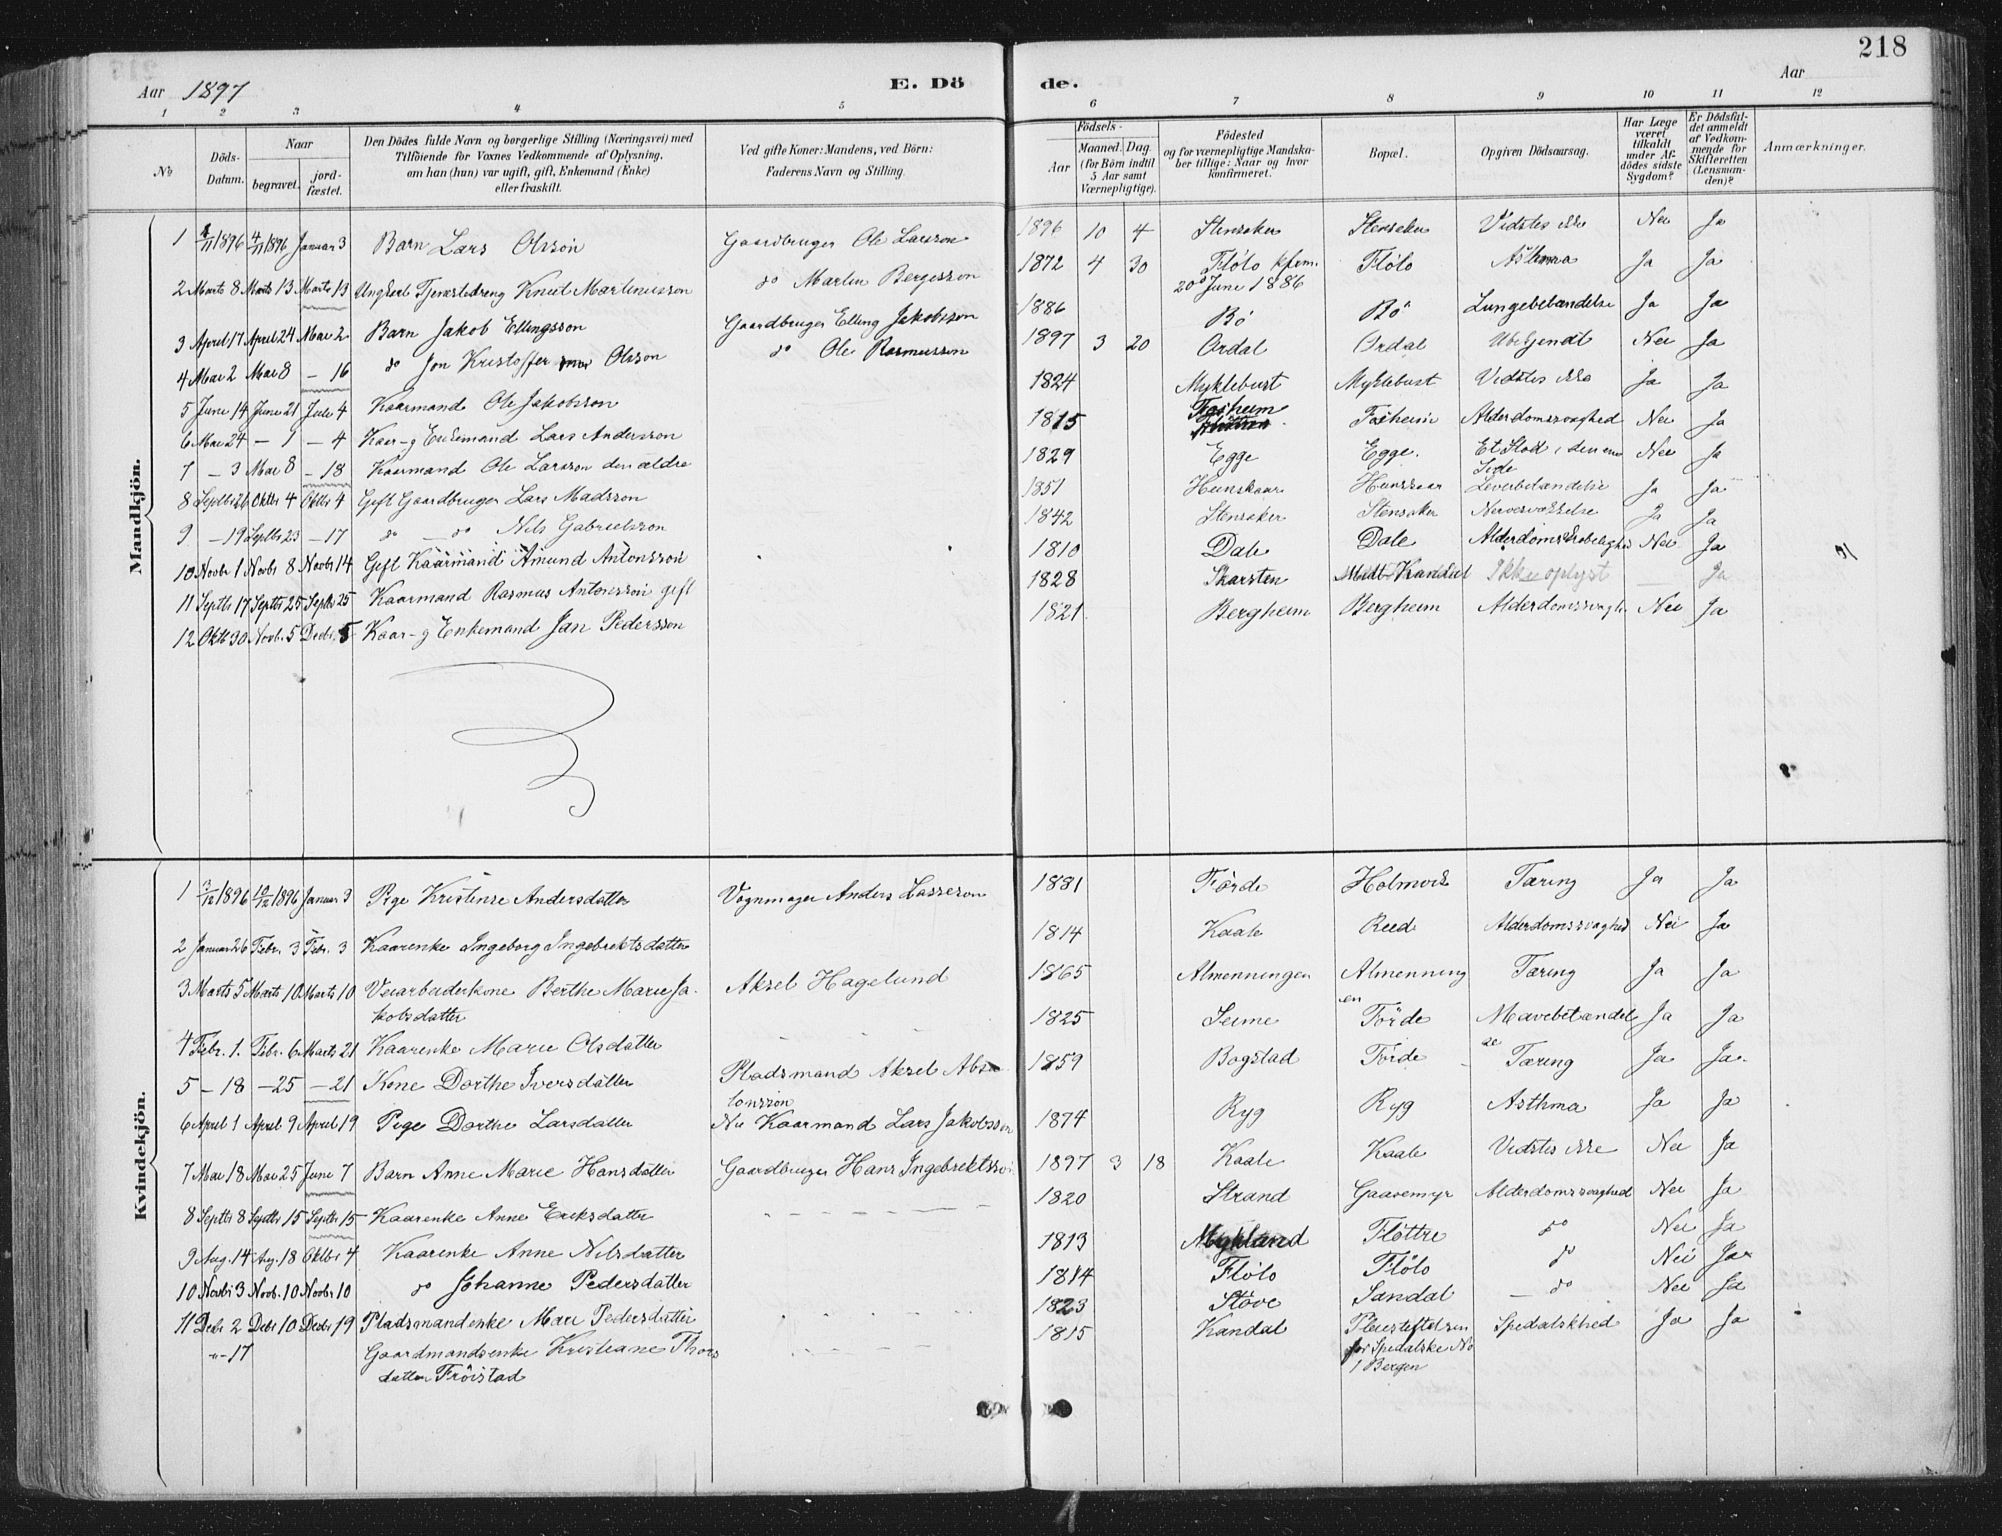 218
Aar 1897
E. Dö de.
Aar
1 2 3 4 5 6 7 8 9 10 11 12
No
Döds-Datum.
Naar
begravet.
jordfæstet.
Den Dödes fulde Navn og borgerlige Stilling (Næringsvei) med
Tilföiende for Voxnes Vedkommende af Oplysning,
om han (hun) var ugift, gift, Enkemand (Enke)
eller fraskilt.
Ved gifte Koner: Mandens, ved Börn:
Faderens Navn og Stilling.
Födsels-
Aar
Maaned. Dag.
(for Börn indtil
5 Aar samt
Værnepligtige).
Födested
og for værnepligtige Mandska-
ber tillige: Naar og hvor
konfirmeret.
Bopæl.
Opgiven Dödsaarsag.
Har Læge
været
tilkaldt
under Af-
dödes sidste
Sygdom?
Er Dödsfal-
det anmeldt
af Vedkom-
mende for
Skifteretten
(Lensman-
den)?
Anmærkninger.
Mandkjön.
1 4/11 1896 Januar 3 Barn Lars Olsson Gaardbruger Ole Larsson 1896 10 4 Stensaker Stensaker Vidstes ikke Nei Ja
2 Marts 8 Marts 13 Marts 13 Ungkarl Tjenestedreng Knut Martinusson do Martin Bergesson 1872 4 30 Flölo kfirm. Flölo Asthma Ja Ja
20de June 1886
3 April 17 April 24 Mai 2 Barn Jakob Ellingsson Gaardbruger Elling Jakobsson 1886 Bö Bö Lungebetændelse Ja Ja
4 Mai 2 Mai 8 – 16 do Jon Kristoffer Olsson do Ole Rasmusson 1897 3 20 Ordal Ordal Ubekjendt Nei Ja
5 June 14 June 21 Jule 4 Kaarmand Ole Jakobsson 1824 Myklebust Myklebust Vidstes ikke Ja Ja
6 Mai 24 – 1 – 4 Kaar- g Enkemand Lars Andersson 1815 Fosheim Fosheim Alderdomssvaghed Nei Ja
7 – 3 Mai 8 – 18 Kaarmand Ole Larsson den ældre 1829 Egge Egge. Et Stöd i den ene Nei Ja
Side
8 Septbr 26 Oktbr 4 Oktbr 4 Gift Gaardbruger Lars Madsson 1851 Hunskaar Hunskaar Leverbetændelse Ja Ja
9 – 19 Septbr 23 – 17 do – do Nils Gabrielsson 1842 Stensaker Stensaker Ja Ja
10 Novbr 1 Novbr 8 Novbr 14 Gift Kaarmand Amund Antonsson 1810 Dale Dale Alderdomsskrøbelighed Nei Ja
11 Septbr 17 Septbr 25 Septbr 25 Kaarmand Rasmus Antonsson gift 1828 Skarsten Midt-Kvandal Ikke oplyst — Ja
12 Oktbr 30 Novbr. 5 Decbr. 5 Kaar- g Enkemand Jan Pedersson 1821 Bergheim Bergheim Alderdomssvagh Nei Ja
Kvindekjön.
1 3/12 1896 12/12 1896 Januar 3 Pige Kristense Andersdatter Vognmager Anders Lasseson 1881 Förde Holmvik Tæring Ja Ja
2 Januar 26 Febr. 3 Febr. 3 Kaarenke Ingeborg Ingebrektsdatter 1814 Kaale Reed Alderdomssvaghed Nei Ja
3 Marts 5 Marts 10 Marts 10 Veiarbeiderkone Berthe Marie Ja- Aksel Hagelund 1865 Almenningen Almenning Tæring Ja Ja
kobsdatter en
4 Febr. 1. Febr. 6 Marts 21 Kaarenke Marie Olsdatter 1825 Seime Förde Mavebetændel Ja Ja
se
5 – 18 – 25 – 21 Kone Dorthe Iversdatter Pladsmand Aksel Absa- 1859 Bogstad Förde Tæring Ja Ja
lonsson
6 April 1 April 9 April 19 Pige Dorthe Larsdatter Nu Kaarmand Lars Jakobsson 1874 Ryg Ryg Asthma Ja Ja
7 Mai 18 Mai 25 June 7 Barn Anne Marie Hansdatter Gaardbruger Hans Ingebrektsson 1897 3 18 Kaale Kaale Vidstes ikke Nei Ja
8 Septbr 8 Septbr 15 Septbr 15 Kaarenke Anne Eriksdatter 1820 Strand Gaavemyr Alderdomssvaghed Nei Ja
9 Aug. 14 Aug. 18 Oktbr 4 Kaarenke Anne Nilsdatter 1813 Mykland Flöttre do Nei Ja
10 Novbr 3 Novb. 10 Novbr 10 do Johanne Pedersdatter 1814 Flölo Flölo do Nei Ja
11 Decbr 2 Decbr 10 Decbr 19 Pladsmandenke Mari Pedersdatter 1823 Stöve Sandal – do Nei Ja
" – 17 Gaardmandsenke Kristiane Thors 1815 Kandal Pleiestiftelsen Spedalskhed Ja Ja
datter Fröistad for Spedalske No
1 Bergen